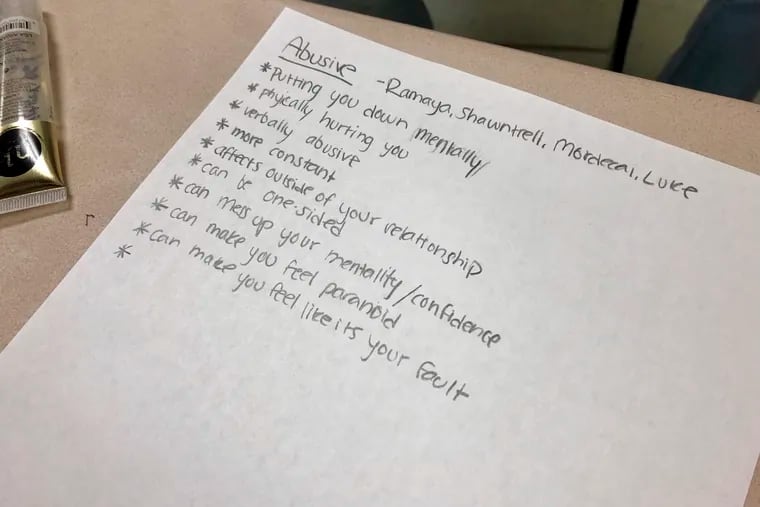 Abusive - Ramaya, Shawntrell, Mordecai, Luke
* Putting you down mentally/
* phyically hurting you
* verbally abusive
* more constant
* affects outside of your relationship
* can be one-sided
* can mess up your mentality/confidence
* can make you feel paranoid
* can make you feel like its your fault
*